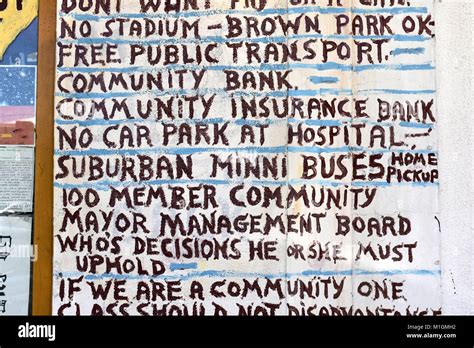 DONT WONT PAY
NO STADIUM - BROWN PARK OK -
FREE PUBLIC TRANSPORT. -
COMMUNITY BANK. -
COMMUNITY INSURANCE BANK
NO CAR PARK AT HOSPITAL. -
SUBURBAN MINNI BUSES HOME PICKUP
100 MEMBER COMMUNITY
MAYOR MANAGEMENT BOARD
WHO'S DECISIONS HE OR SHE MUST
UPHOLD -
IF WE ARE A COMMUNITY ONE
CLASS SHOULD NOT DISADVANTAGE
alamy
Image ID: J1MGMH2
www.alamy.com